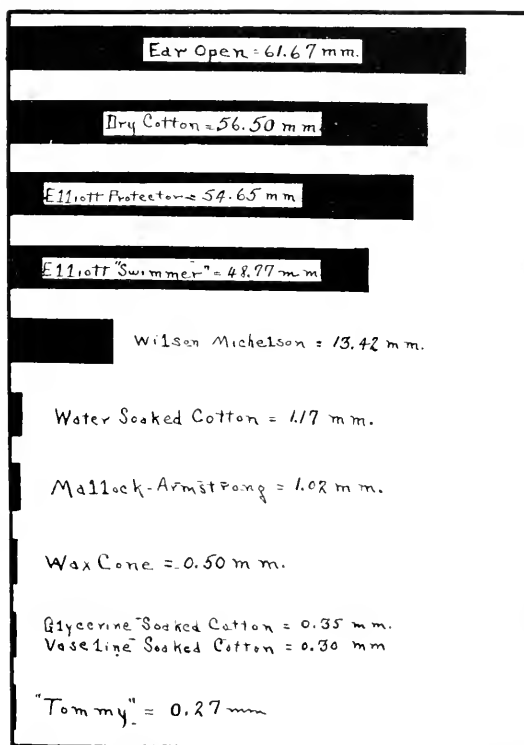 Ear Open = 61.67 mm.
Dry Cotton = 56.50 mm
Elliott Protector = 54.65 mm
Elliott "Swimmer" = 48.77 mm
Wilson Michelson = 13.42 mm.
Water Soaked Cotton = 1.17 mm.
Mallock-Armstrong = 1.02 mm.
Wax Cone = 0.50 mm.
Glycerine Soaked Cotton = 0.35 mm.
Vaseline Soaked Cotton = 0.30 mm
"Tommy" = 0.27 mm